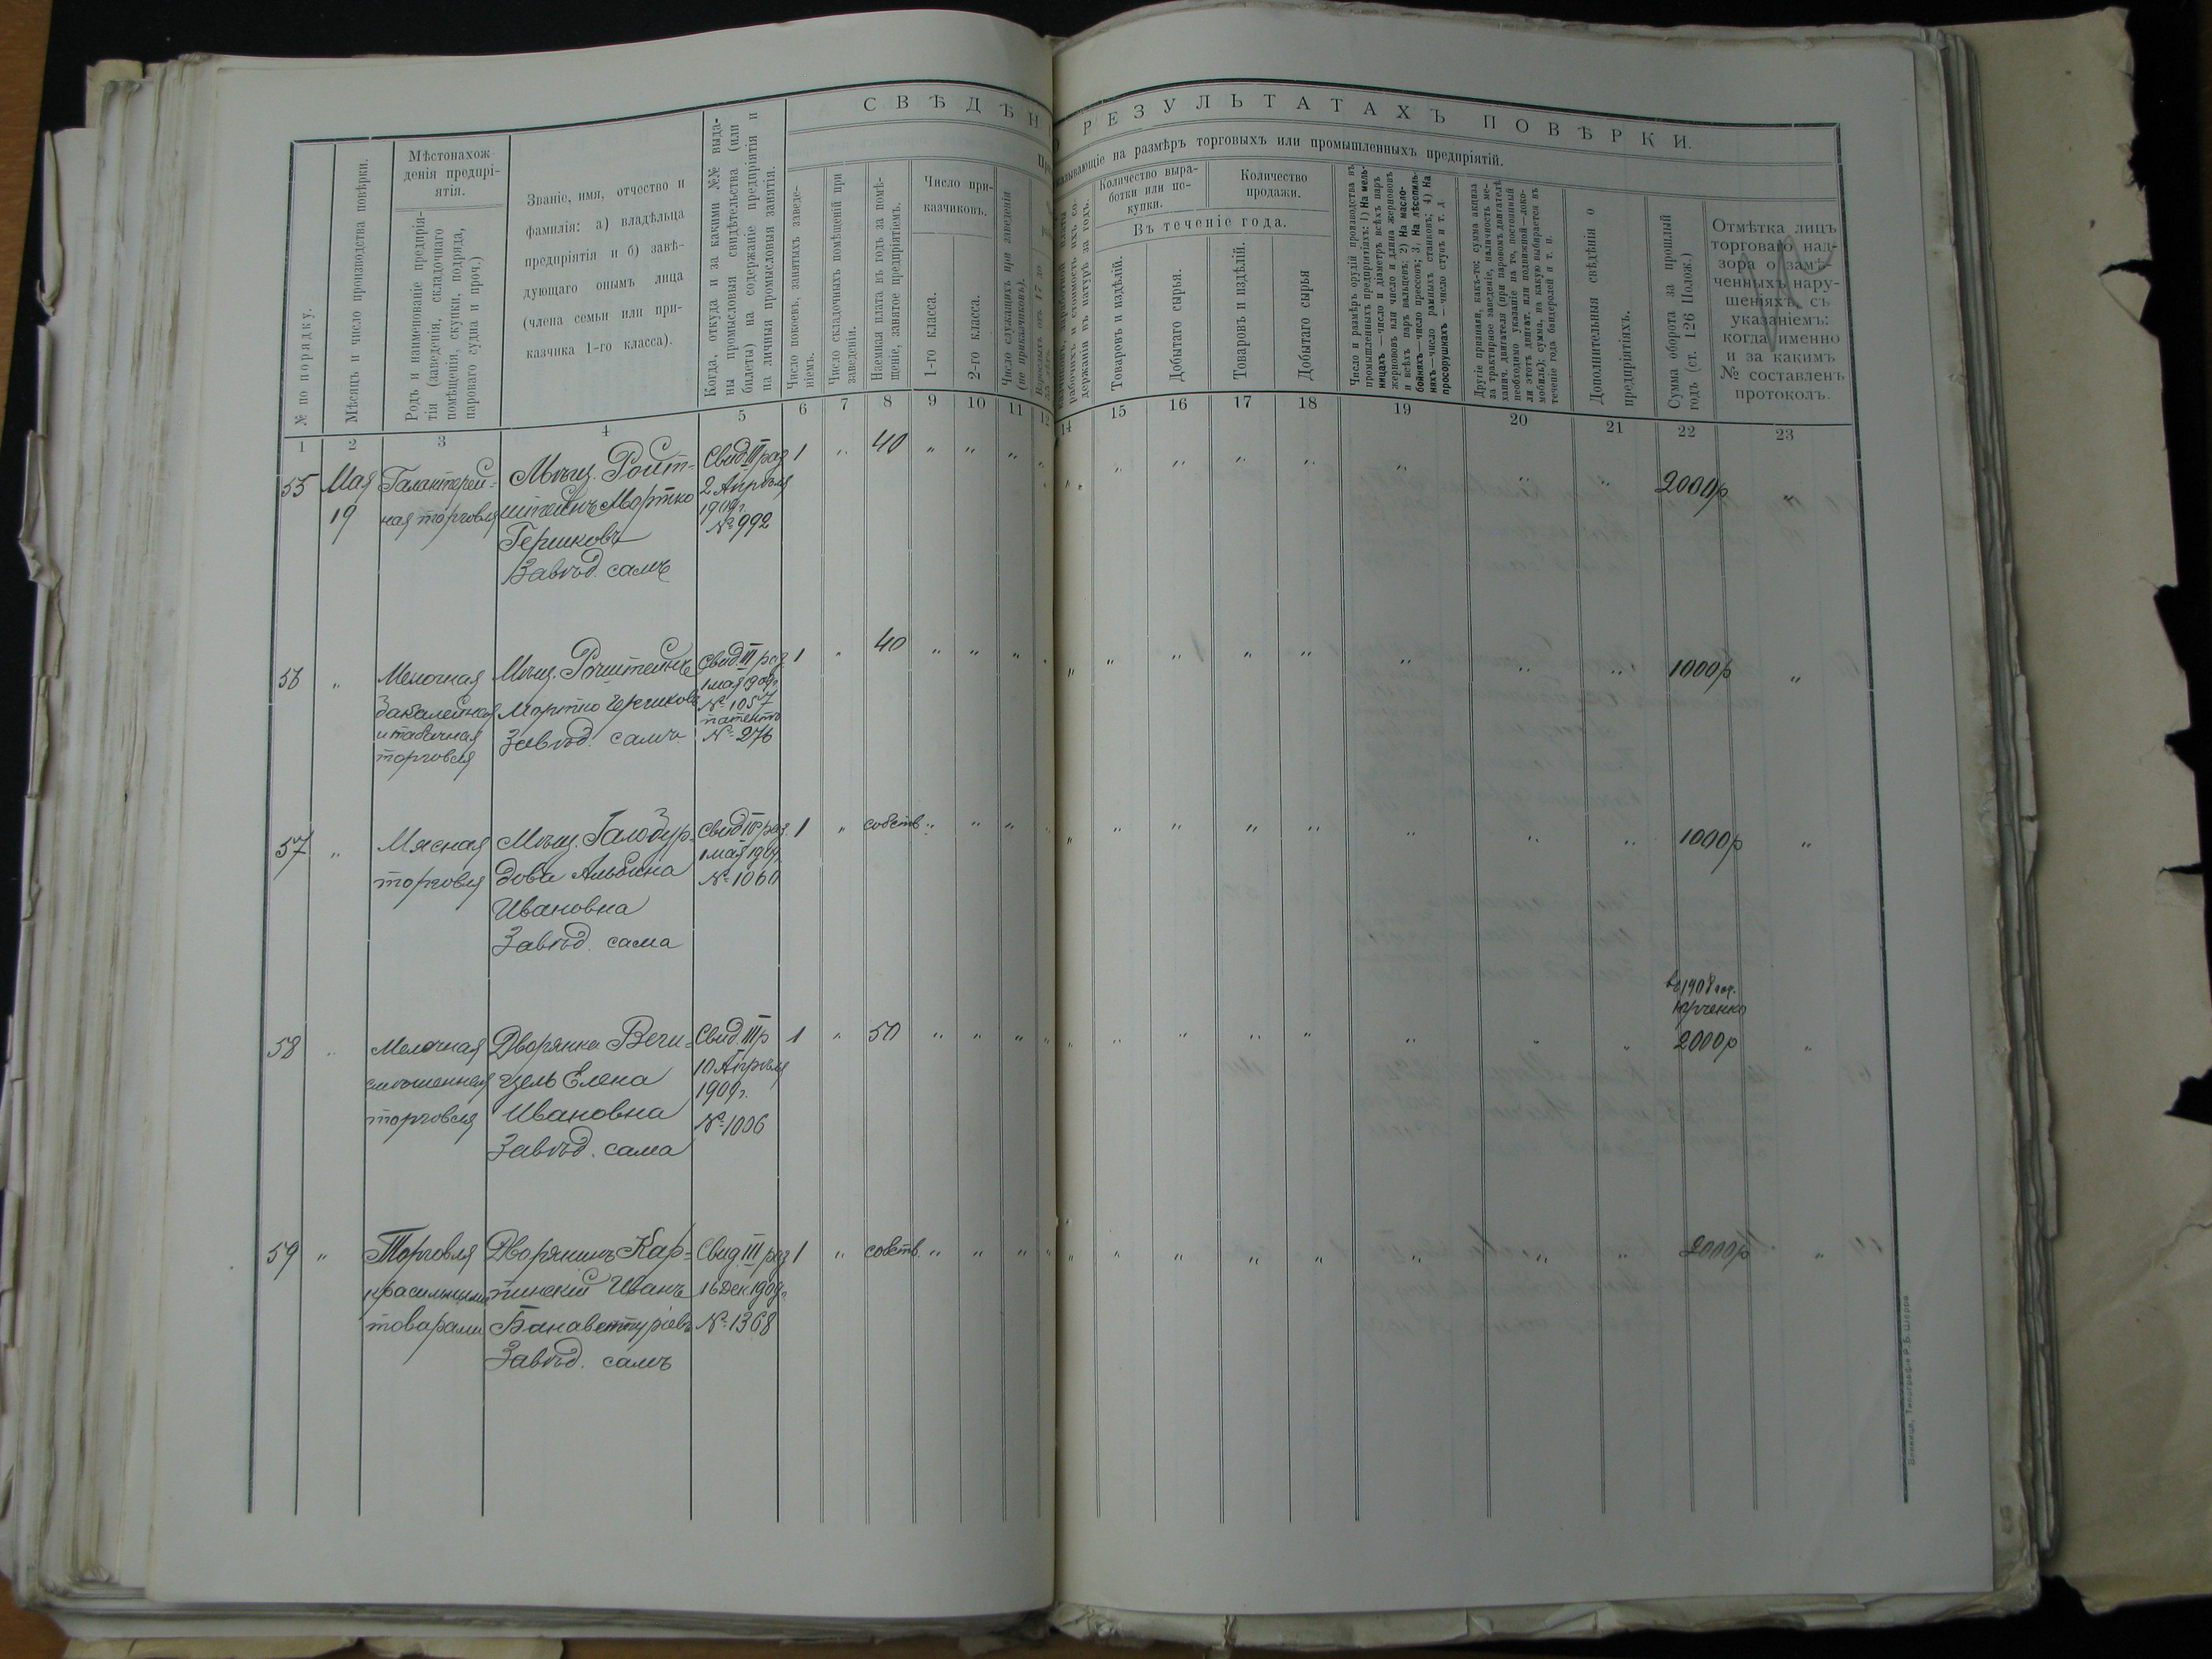 СВѢДѢН
О РЕЗУЛЬТАТАХЪ ПОВѢРКИ.
указывающіе на размѣръ торговыхъ или промышленныхъ предпріятій.
№ по порядку.
Мѣсяцъ и число производства повѣрки.
Мѣстонахож-
денія предпрі-
ятія.
Родъ и наименованіе предпрія-
тія (заведенія, складочнаго
помѣщенія, скупки, подряда,
парового судна и проч.)
Званіе, имя, отчество и
фамилія: а) владѣльца
предпріятія и б) завѣ-
дующаго онымъ лица
(члена семьи или при-
казчика 1-го класса).
Когда, откуда и за какими №№ выда-
ны промысловыя свидѣтельства (или
билеты) на содержаніе предпріятія и
на личныя промысловыя занятія.
Число покоевъ, занятыхъ заведе-
ніемъ.
Число складочныхъ помѣщеній при
заведеніи.
Наемная плата въ годъ за помѣ-
щеніе, занятое предпріятіемъ.
Число при-
казчиковъ.
1-го класса.
2-го класса.
Число служащихъ при заведеніи
(не приказчиковъ).
рабочихъ и стоимость ихъ со-
держанія въ натурѣ за годъ.
Количество выра-
ботки или по-
купки.
Количество
продажи.
Въ теченіе года.
Товаровъ и издѣлій.
Добытаго сырья.
Товаровъ и издѣлій.
Добытаго сырья
Число и размѣръ орудій производства въ
промышленныхъ предпріятіяхъ: 1) На мель-
ницахъ—число и діаметръ всѣхъ паръ
жернововъ или число и длина жернововъ
и всѣхъ паръ вальцевъ; 2) На масло-
бойняхъ—число прессовъ; 3) На лѣсопиль-
няхъ—число рамныхъ станковъ; 4) На
просорушняхъ—число ступъ и т. д.
Другіе признаки, какъ-то: сумма акциза
за трактирное заведеніе, наличность ме-
ханич. двигателя (при паровомъ двигателѣ
необходимо указаніе на то, постоянный
ли этотъ двигат. или подвижной—локо-
мобиль); сумма, на какую выбирается въ
теченіе года бандеролей и т. п.
Дополнительныя свѣдѣнія о
предпріятіяхъ.
Сумма оборота за прошлый
годъ (ст. 126 Полож.)
Отмѣтка лицъ
торговаго над-
зора о замѣ-
ченныхъ нару-
шеніяхъ, съ
указаніемъ:
когда именно
и за какимъ
№ составленъ
протоколъ.
1 2 3 4 5 6 7 8 9 10 11 12 14 15 16 17 18 19 20 21 22 23
55 Мая Галантерей- Мѣщ. Роит- Свид. III раз 1 " 40 " " " " " " " " " " " " 2000р "
19 ная торговля штейнъ Мортко 2 Апрѣля
Гершковъ 1909г.
№ 992
Завѣд. самъ
56 " Мелочная Мѣщ. Роитштейнъ Свид. III раз. 1 " 40 " " " " " " " " " " " " 1000р "
бакалейная Мортко Гершковъ 1 мая 1909г
и табачная Завѣд. самъ. № 1057
торговля патентъ
№ 276
57 " Мясная Мѣщ. Свид IV раз. 1 " собств. " " " " " " " " " " " " 1000р "
торговля Альбина 1 мая 1909г.
Ивановна № 1060
Завѣд. сама
въ 1908 год.
Юрченко
58 " Мелочная Дворянка Веги- Свид. III р 1 " 50 " " " " " " " " " " " " 2000р "
смѣшенная цель Елена 10 Апрѣля
торговля Ивановна 1909г.
Завѣд. сама № 1006
59 " Торговля Дворянинъ Кар- Свид. III раз 1 " собств. " " " " " " " " " " " " 2000р "
красильными пинскій Иванъ 16 Дек. 1909г.
товарами Банавентуріевъ № 1368
Завѣд. самъ
Винница, Типографія Р.Б. Шерра